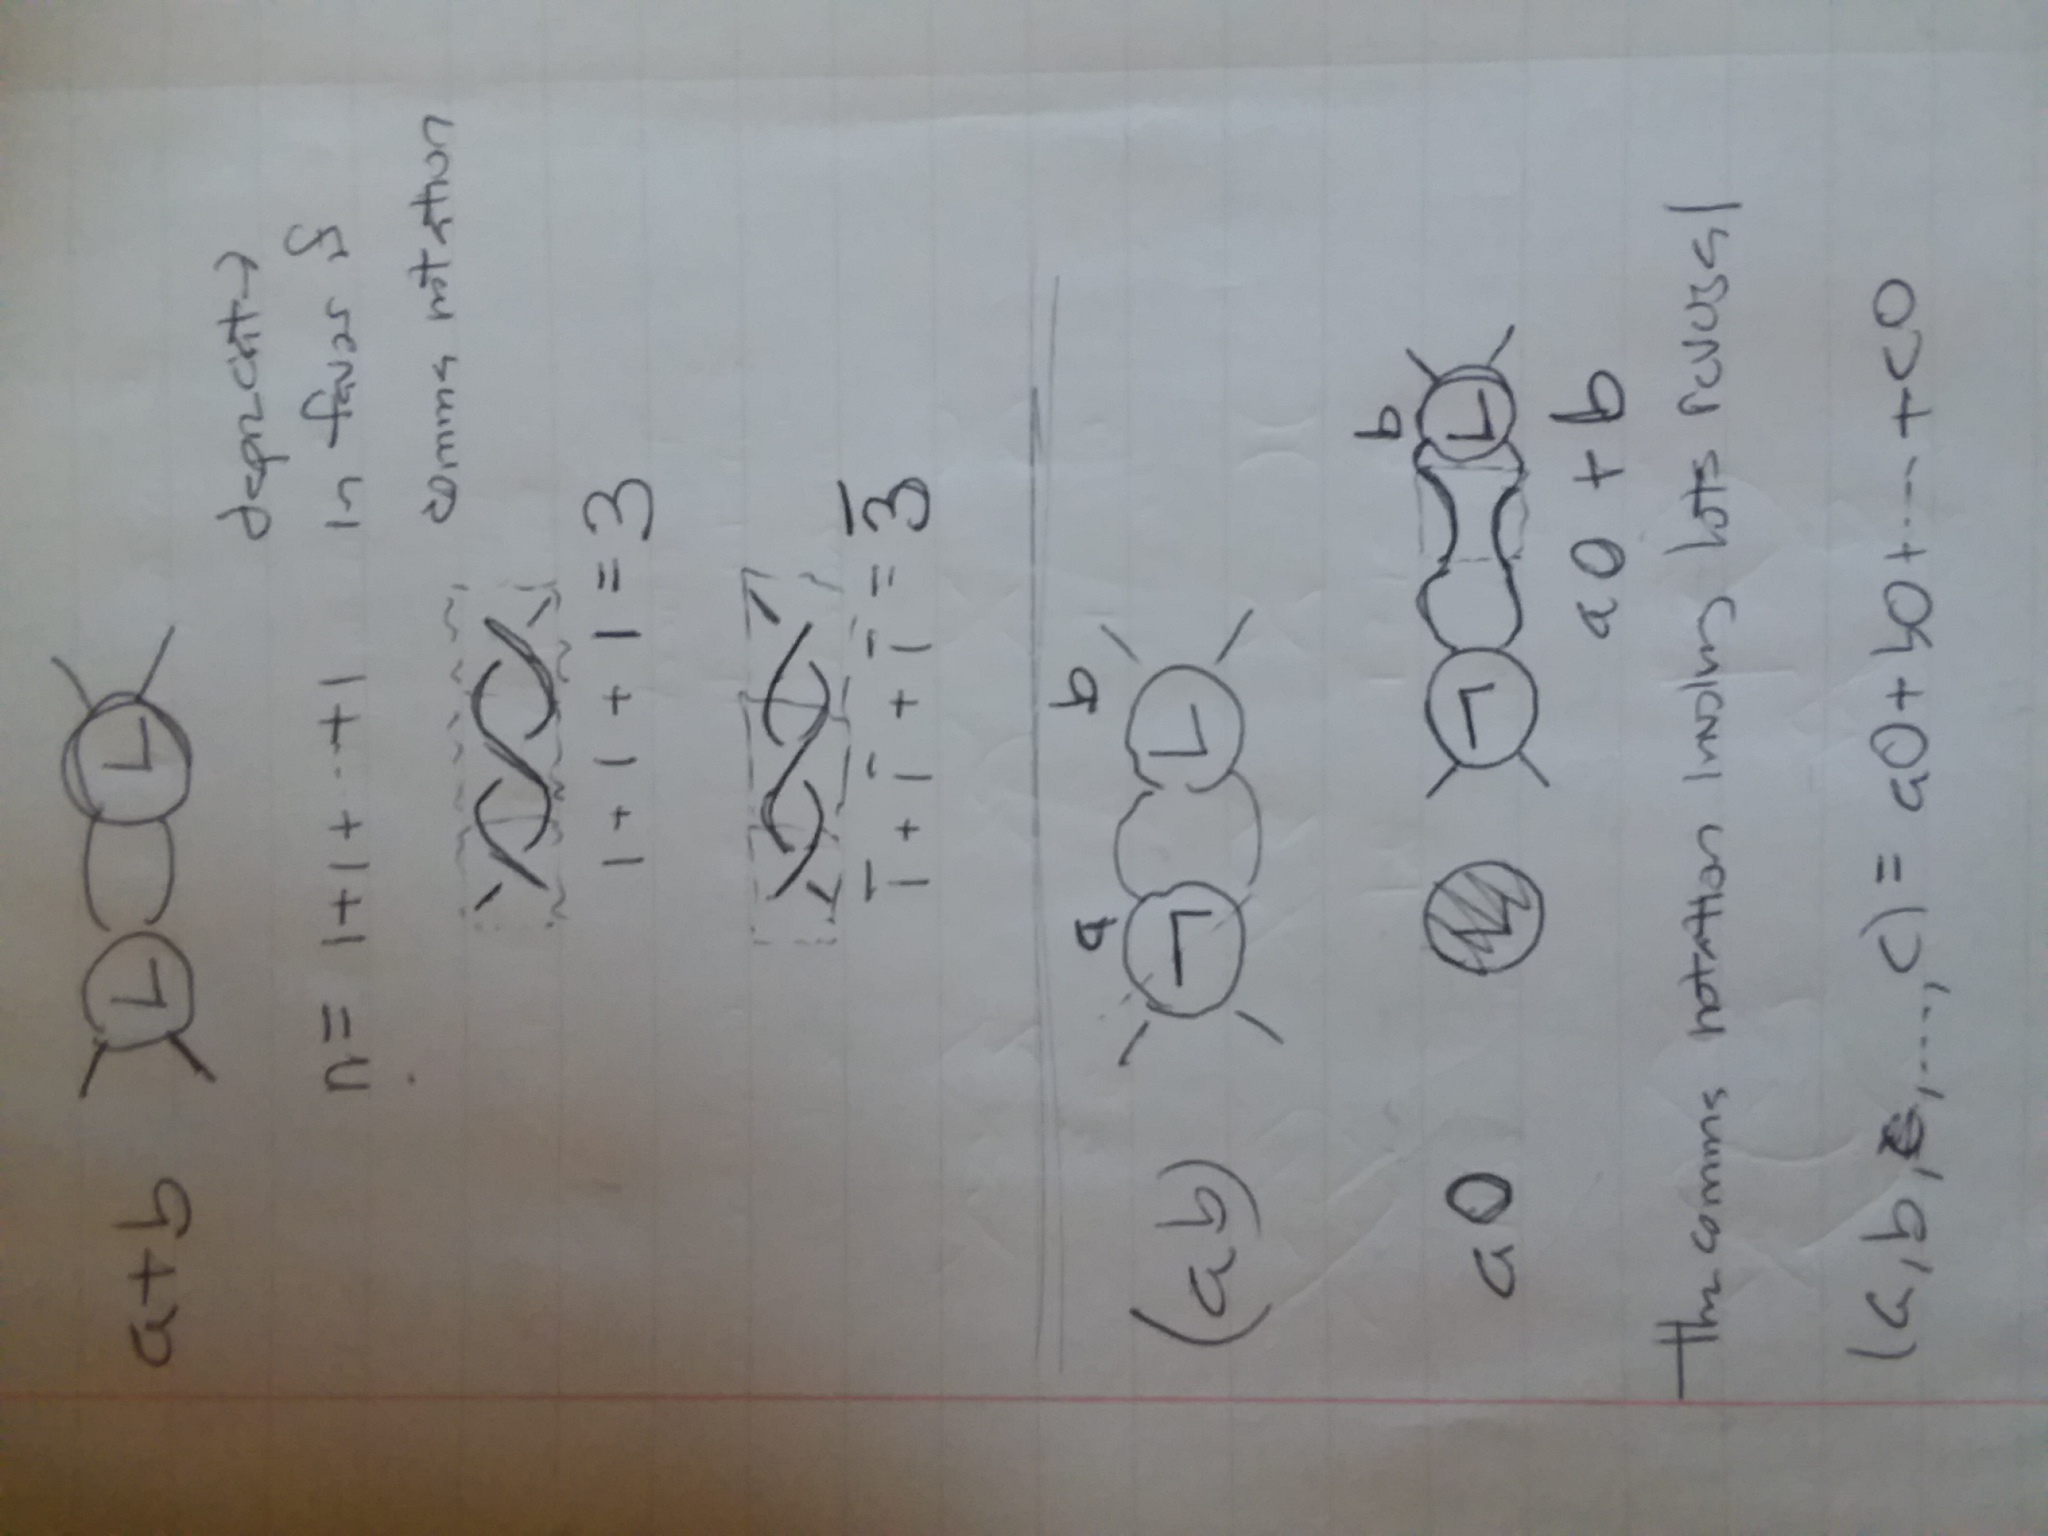 a+b L L
deprecate
n = 1+1+1+...+1 in favor of
comma notation
1 + 1 + 1 = 3
1̄ + 1̄ + 1̄ = 3̄
(ab) a L b L
a0 L b L
a 0 + b
The comma notation involving lots
(a,b, ,...,c) = a0+b0+...+c0